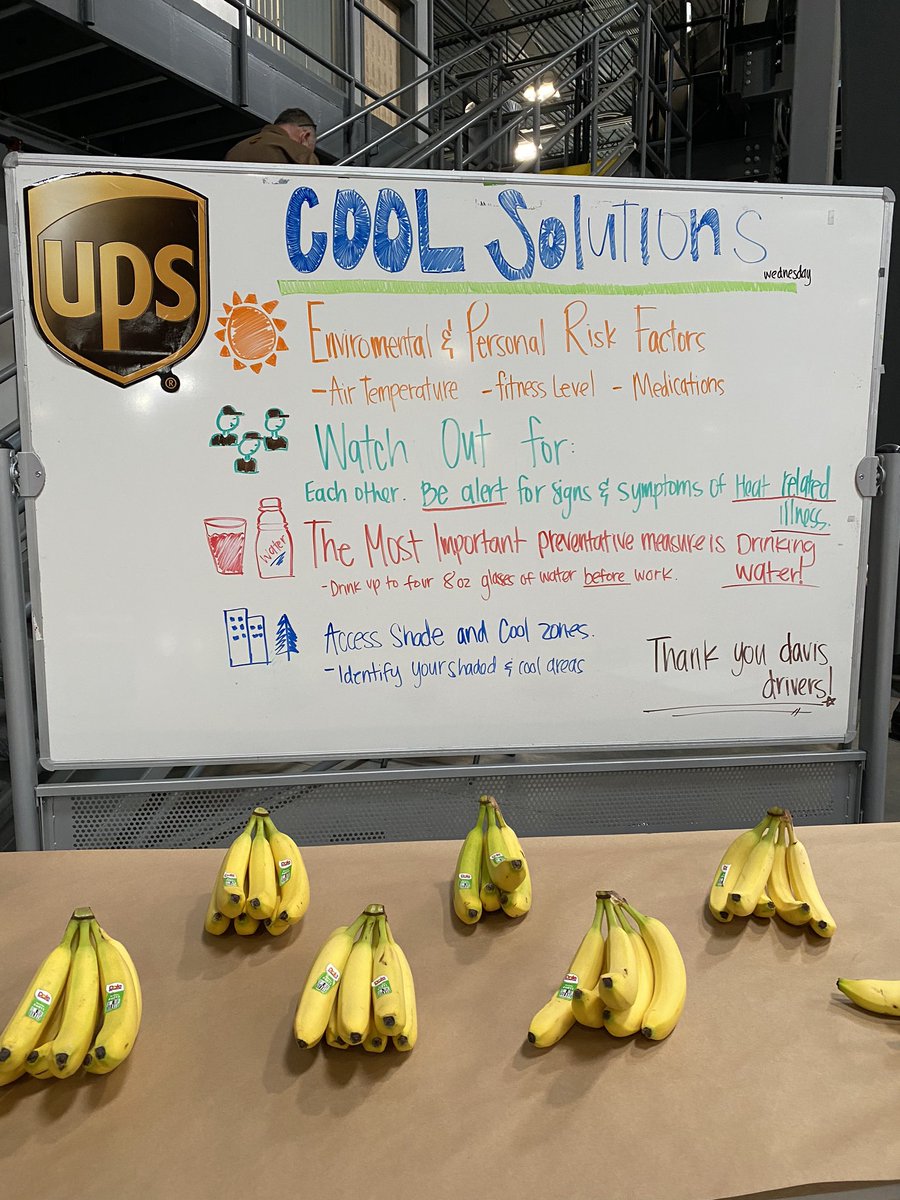 ups
®
COOL Solutions
wednesday
Enviromental & Personal Risk Factors
- Air Temperature - fitness Level - Medications
Watch Out for:
Each other. Be alert for signs & symptoms of Heat related
illness.
water
The Most Important preventative measure is Drinking
water!
- Drink up to four 8oz glases of water before work.
Access Shade and Cool zones.
- Identify your shadod & cool areas
Thank you davis
drivers!
Dole
Dole
Dole
Dole
Dole